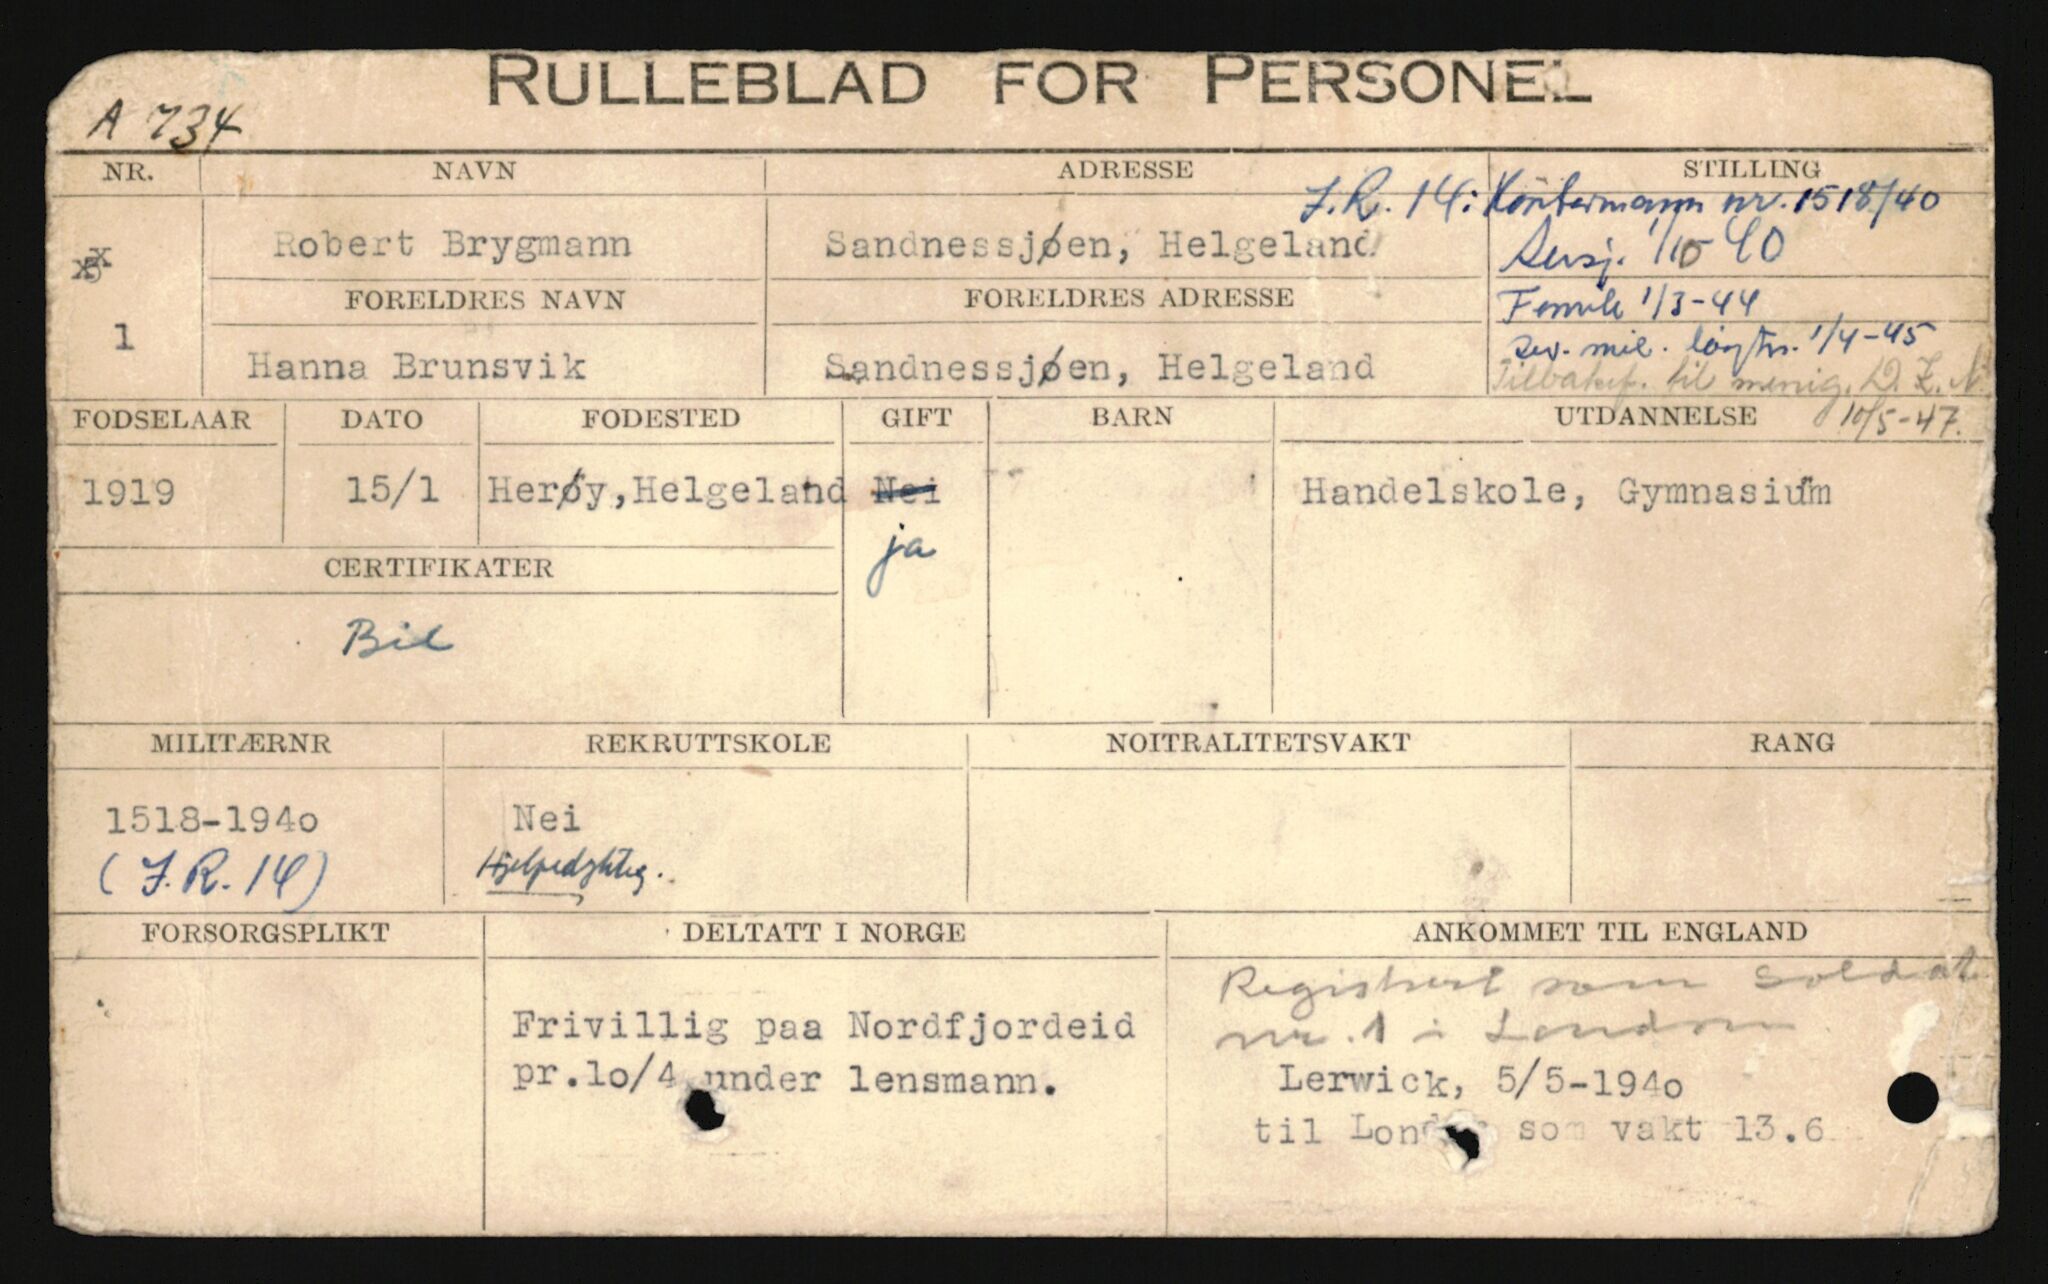 RULLEBLAD FOR PERSONEL
A 734
NR. NAVN ADRESSE STILLING
J.R. 14: nr. 1518/40
Robert Brygmann Sandnessjøen, Helgeland
Sersj. 1/10 40
FORELDRES NAVN FORELDRES ADRESSE
Fenrik 1/3-44
1
Hanna Brunsvik Sandnessjøen, Helgeland
mil. 1/4-45
til menig.
10/5-47.
FODSELAAR DATO FODESTED GIFT BARN UTDANNELSE
1919 15/1 Herøy, Helgeland Nei Handelskole, Gymnasium
ja
CERTIFIKATER
Bil
MILITÆRNR REKRUTTSKOLE NOITRALITETSVAKT RANG
1518-194o Nei
(J.R. 14) Hjelpedyktig.
FORSORGSPLIKT DELTATT I NORGE ANKOMMET TIL ENGLAND
Registrert som soldat
nr. 1 i London
Frivillig paa Nordfjordeid
pr.lo/4 under lensmann.
Lerwick, 5/5-194o
til London som vakt 13.6